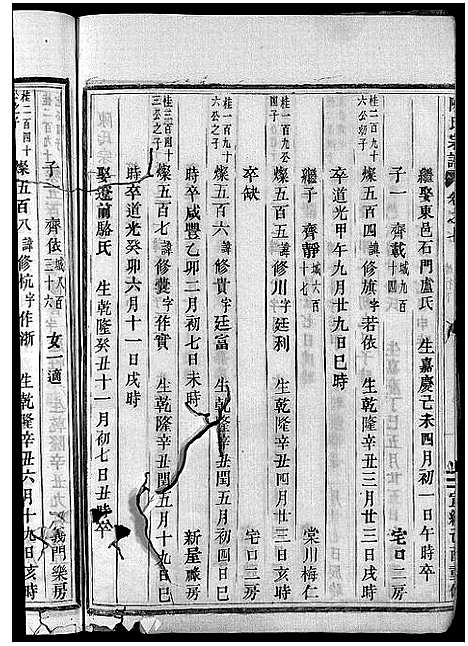 陳氏宗譜 卷之七
宣統己酉重修
繼娶東邑石門盧氏 生嘉慶己未四月初一日午時卒
子一 齊載 城九百四十 宅口二房
桂一百九十六公之子 燦五百四 諱修旗字若依 生乾隆辛丑三月廿三日戌時
卒道光甲午九月廿九日巳時
繼子 齊靜 城六百十七 棠川梅仁
桂一百九十四子 燦五百五 諱修川字廷利 生乾隆辛丑 月廿三日亥時
卒缺 宅口三房
桂一百九十六公子 燦五百六 諱修貴字廷富 生乾隆辛丑閏五月初四日巳時
時卒咸豐乙卯二月初七日未時 新屋 房
桂三百四十三公之子 燦五百七 諱修囊字作實 生乾隆辛丑閏五月十九日亥
時卒道光癸卯六月十一日戌時
娶遷前駱氏 生乾隆癸丑十一月初七日丑時卒
子一 齊依 城八百三十六 女一適 義門樂房
桂二百四十公之子 燦五百八 諱修杭字作浙 生乾隆辛丑六月十九日亥時